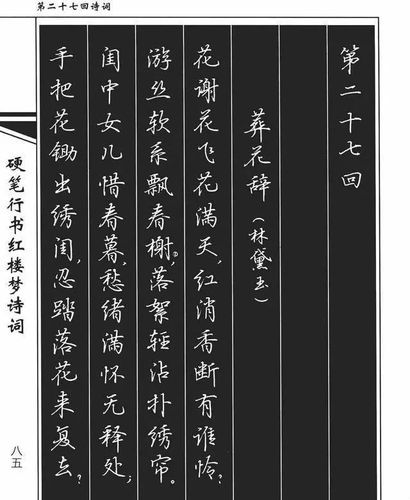 第二十七回诗词
第二十七回
葬花辞（林黛玉）
花谢花飞花满天，红消香断有谁怜？
游丝软系飘春榭，落絮轻沾扑绣帘。
闺中女儿惜春暮，愁绪满怀无释处；
手把花锄出绣闺，忍踏落花来复去？
硬笔行书红楼梦诗词
八五